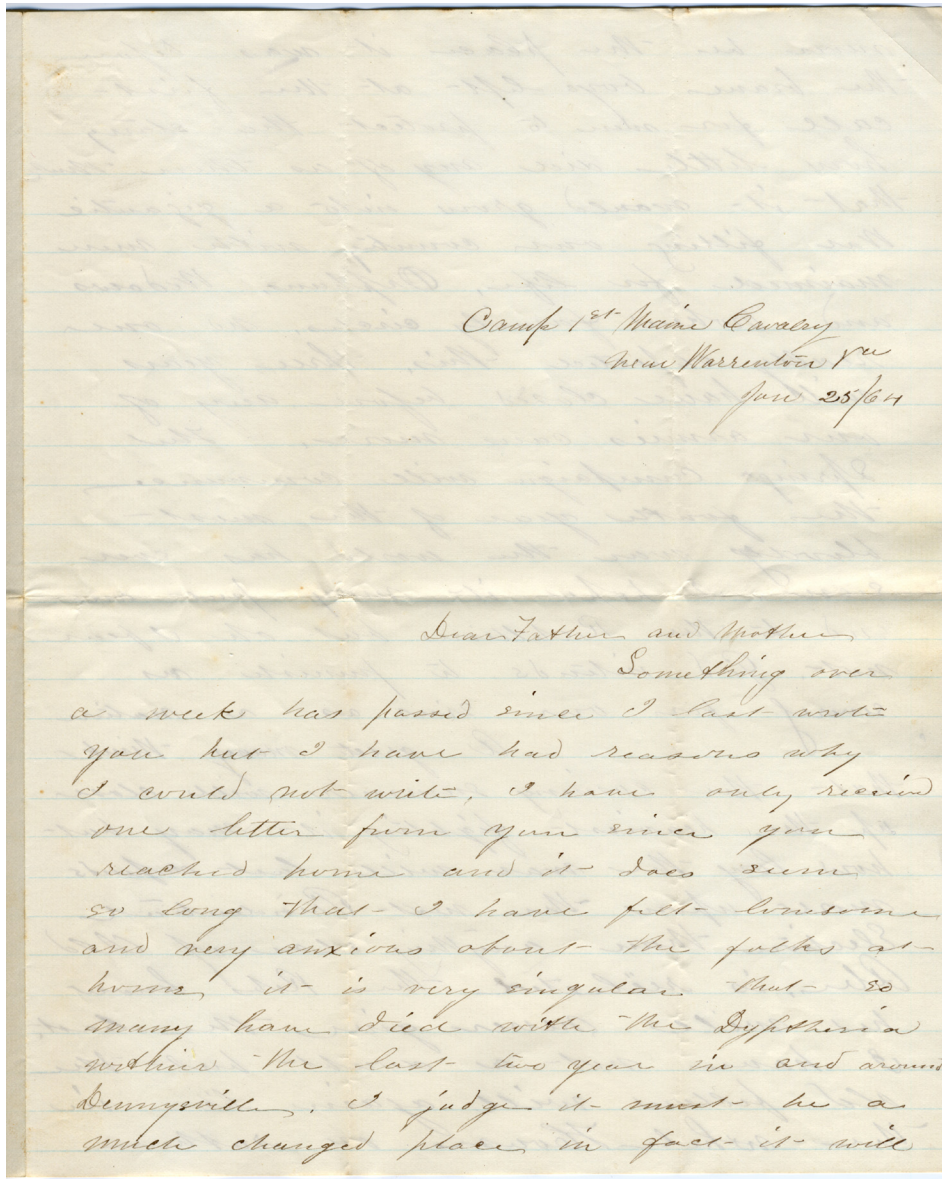 Camp 1st Maine Cavalry
near Warrenton Va
Jan 25/64
Dear Father and Mother
Something over
a week has passed since I last wrote
you but I have had reasons why
I could not write, I have only received
one letter from you since you
reached home and it does seem
so long that I have felt lonesome
and very anxious about the folks at
home it is very singular that so
many have died with the Dyptheria
within the last two year in and around
Dennysville. I judge it must be a
much changed place in fact it will